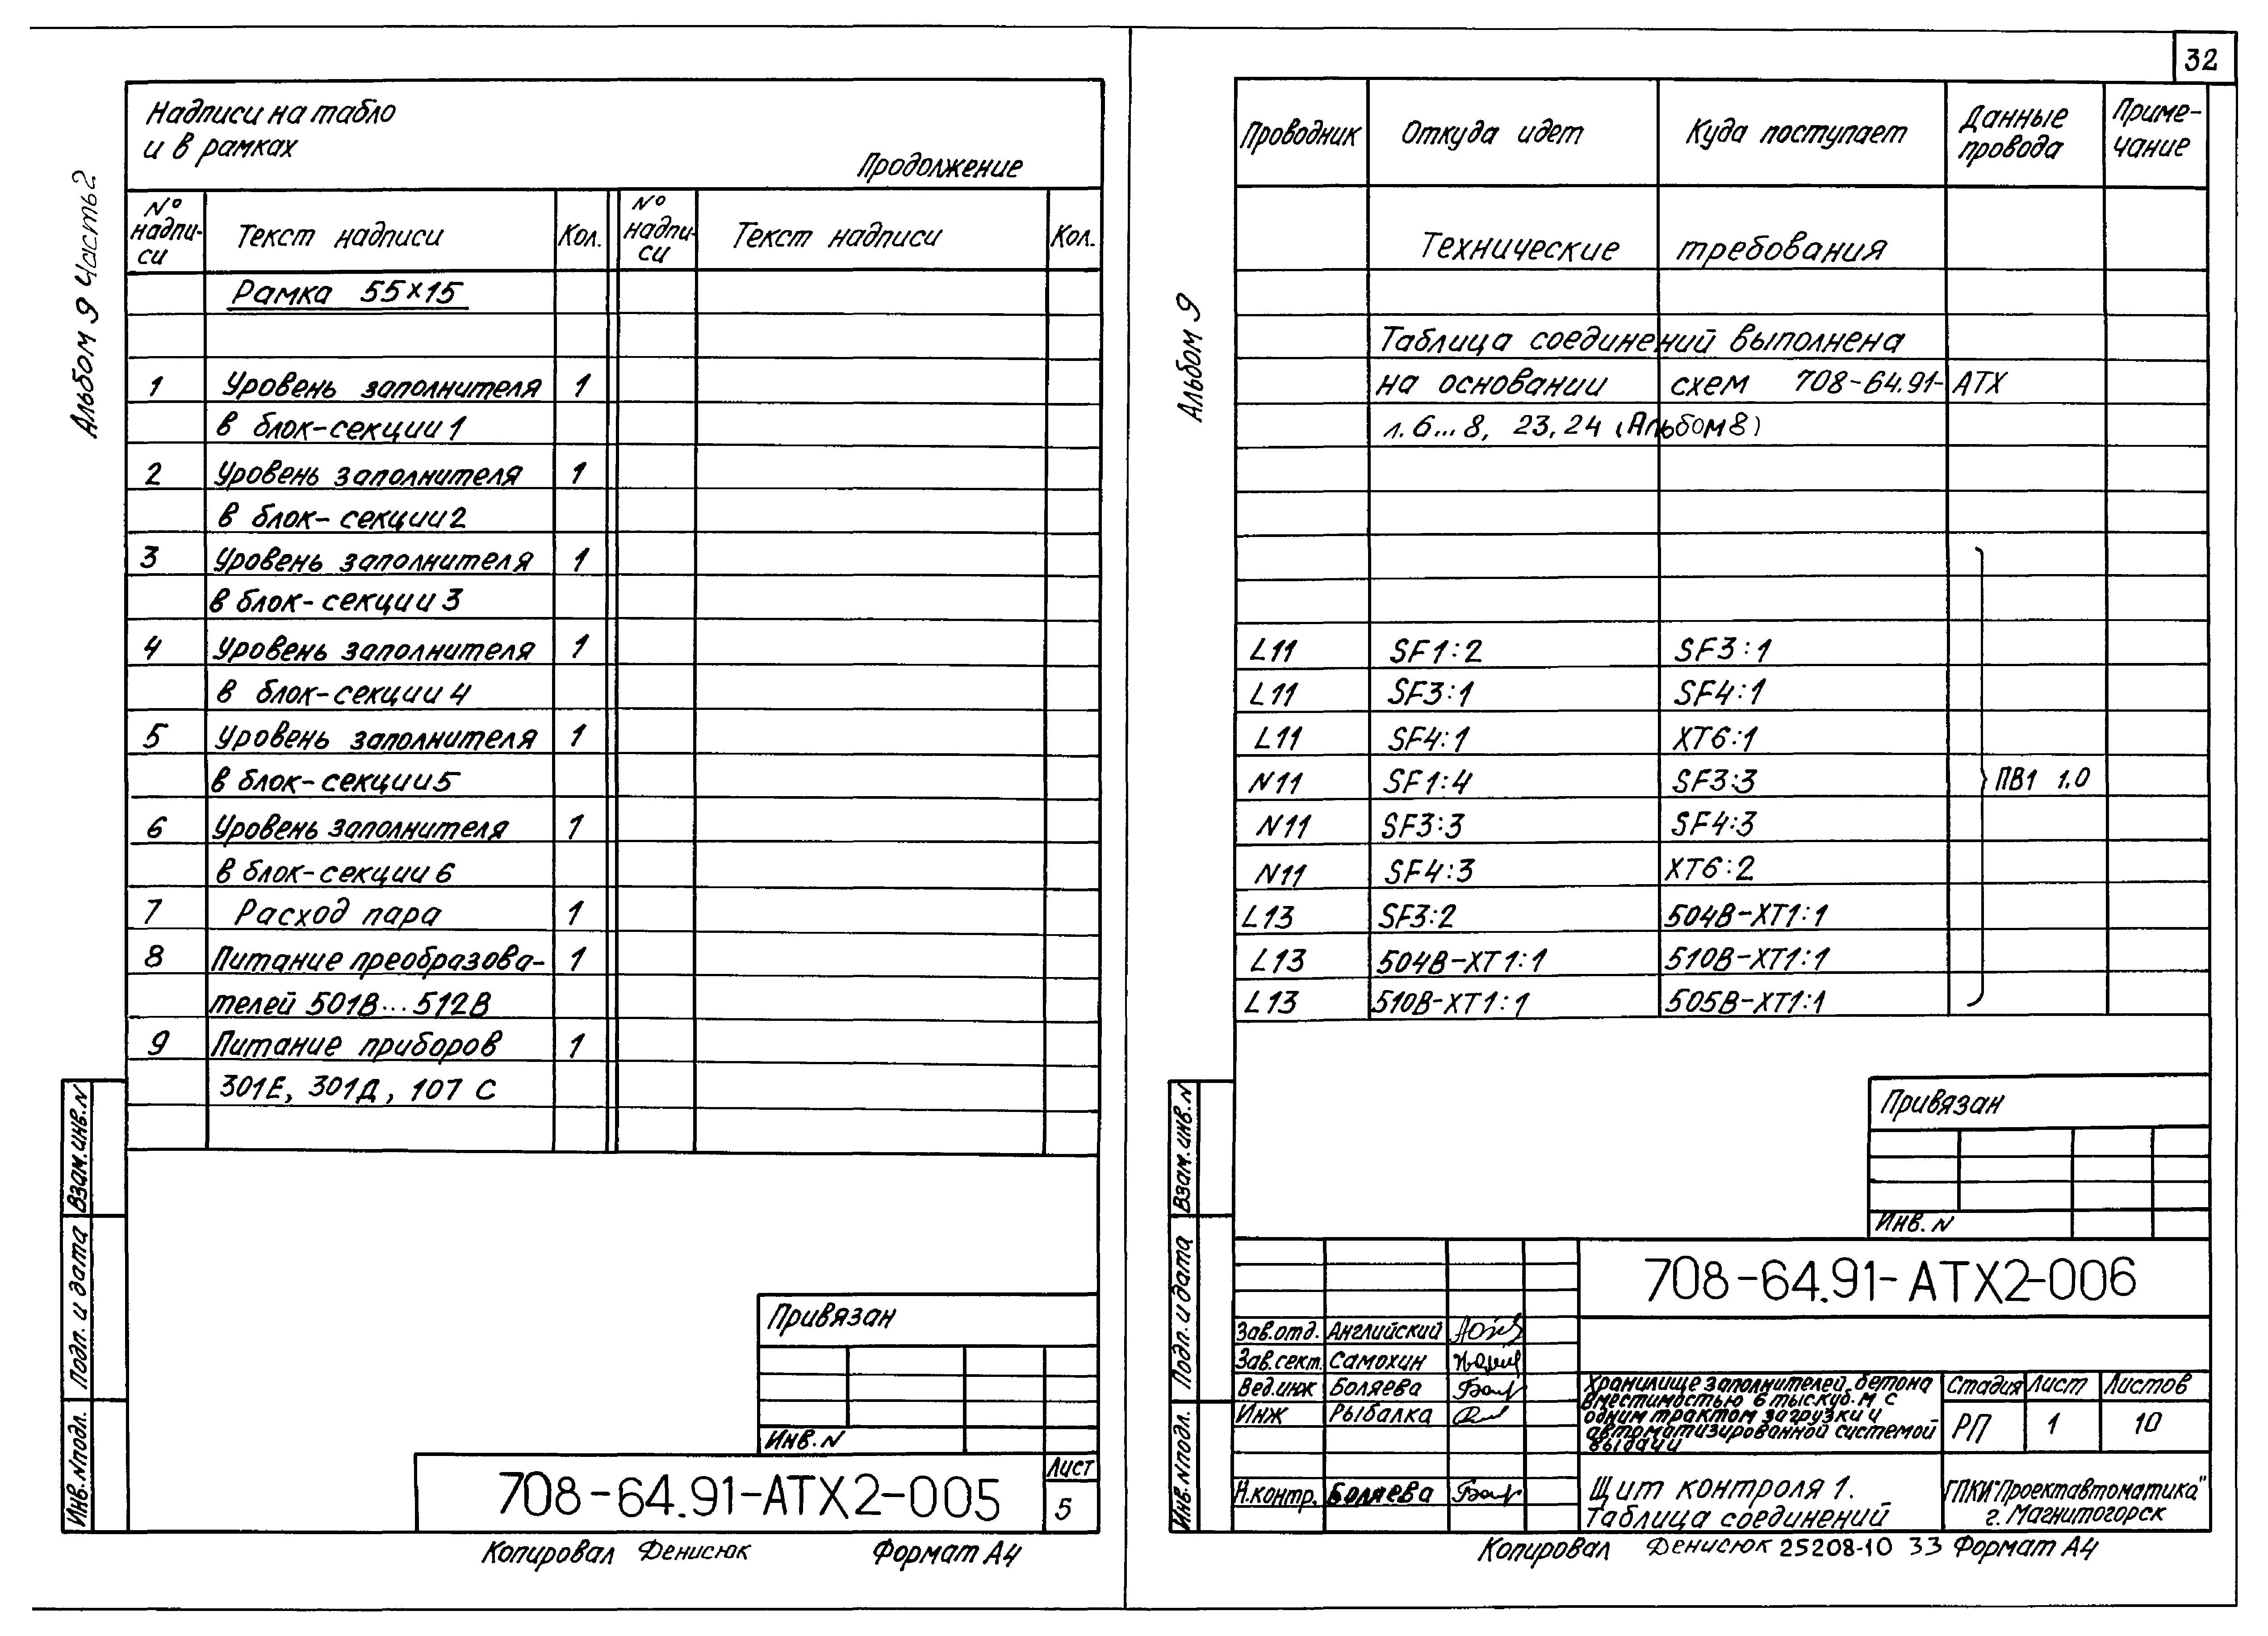 Альбом 9 Часть 2
Надписи на табло
и в рамках
Продолжение
№ надпи-си Текст надписи Кол. № надпи-си Текст надписи Кол.
Рамка 55×15
1 Уровень заполнителя 1
в блок-секции 1
2 Уровень заполнителя 1
в блок-секции 2
3 Уровень заполнителя 1
в блок-секции 3
4 Уровень заполнителя 1
в блок-секции 4
5 Уровень заполнителя 1
в блок-секции 5
6 Уровень заполнителя 1
в блок-секции 6
7 Расход пара 1
8 Питание преобразова- 1
телей 501В...512В
9 Питание приборов 1
301Е, 301Д, 107 С
Взам.инв.N
Подп. и дата
Инв.Nподл.
Привязан
Инв.N
708-64.91-АТХ2-005
Лист
5
Копировал Денисюк Формат А4
32
Альбом 9
Проводник Откуда идет Куда поступает Данные провода Приме-чание
Технические требования
Таблица соединений выполнена
на основании схем 708-64.91-АТХ
л.6...8, 23,24 (Альбом 8)
L11 SF1:2 SF3:1
L11 SF3:1 SF4:1
L11 SF4:1 XT6:1
N11 SF1:4 SF3:3 ПВ1 1.0
N11 SF3:3 SF4:3
N11 SF4:3 XT6:2
L13 SF3:2 504В-XT1:1
L13 504В-XT1:1 510В-XT1:1
L13 510В-XT1:1 505В-XT1:1
Взам.инв.N
Подп. и дата
Инв.Nподл.
Привязан
Инв.N
708-64.91-АТХ2-006
Зав.отд. Английский
Зав.сект. Самохин
Вед.инж Боляева
Инж Рыбалка
Н.контр. Боляева
Хранилище заполнителей бетона
вместимостью 6 тыс.куб.м с
одним трактом загрузки и
автоматизированной системой
выдачи
Стадия Лист Листов
РП 1 10
Щит контроля 1.
Таблица соединений
ГПКИ"Проектавтоматика"
г. Магнитогорск
Копировал Денисюк 25208-10 33 Формат А4